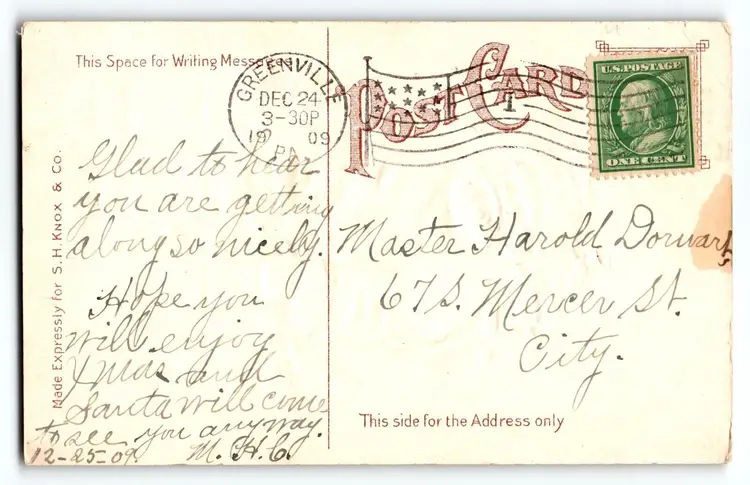 This Space for Writing Messages
POST CARD
GREENVILLE
DEC 24
3-30P
19 09
PA.
1
U.S. POSTAGE
ONE CENT
Made Expressly for S. H. KNOX & Co.
Glad to hear
you are getting
along so nicely.
Hope you
will enjoy
Xmas and
Santa will come
to see you anyway.
12-25-09. M. H. C.
Master Harold Dorwart
67 S. Mercer St.
City.
This side for the Address only